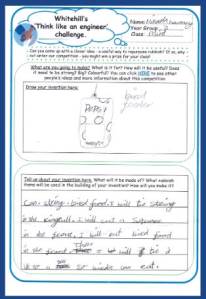 Whitehill's
"Think like an engineer"
challenge.
Name:
Year Group:
Class
Can you come up with a clever idea - a useful way to repurpose rubbish? If so, why
not enter our competition - you might win a prize for your class!
What are you going to make? What is it for? How will it be useful? Does
it need to be strong? Big? Colourful? You can click HERE to see other
people's ideas and more information about this competition
Draw your invention here:
bird
feeder
PEPSI
Tell us about your invention here. What will it be made of? What rubbish
items will be used in the building of your invention? How will you make it?
Can, string, bird food, I will tie string
in the ring pull. I will cut a
in the I will put bird food
in the I will tie it
up to a so birds can eat.